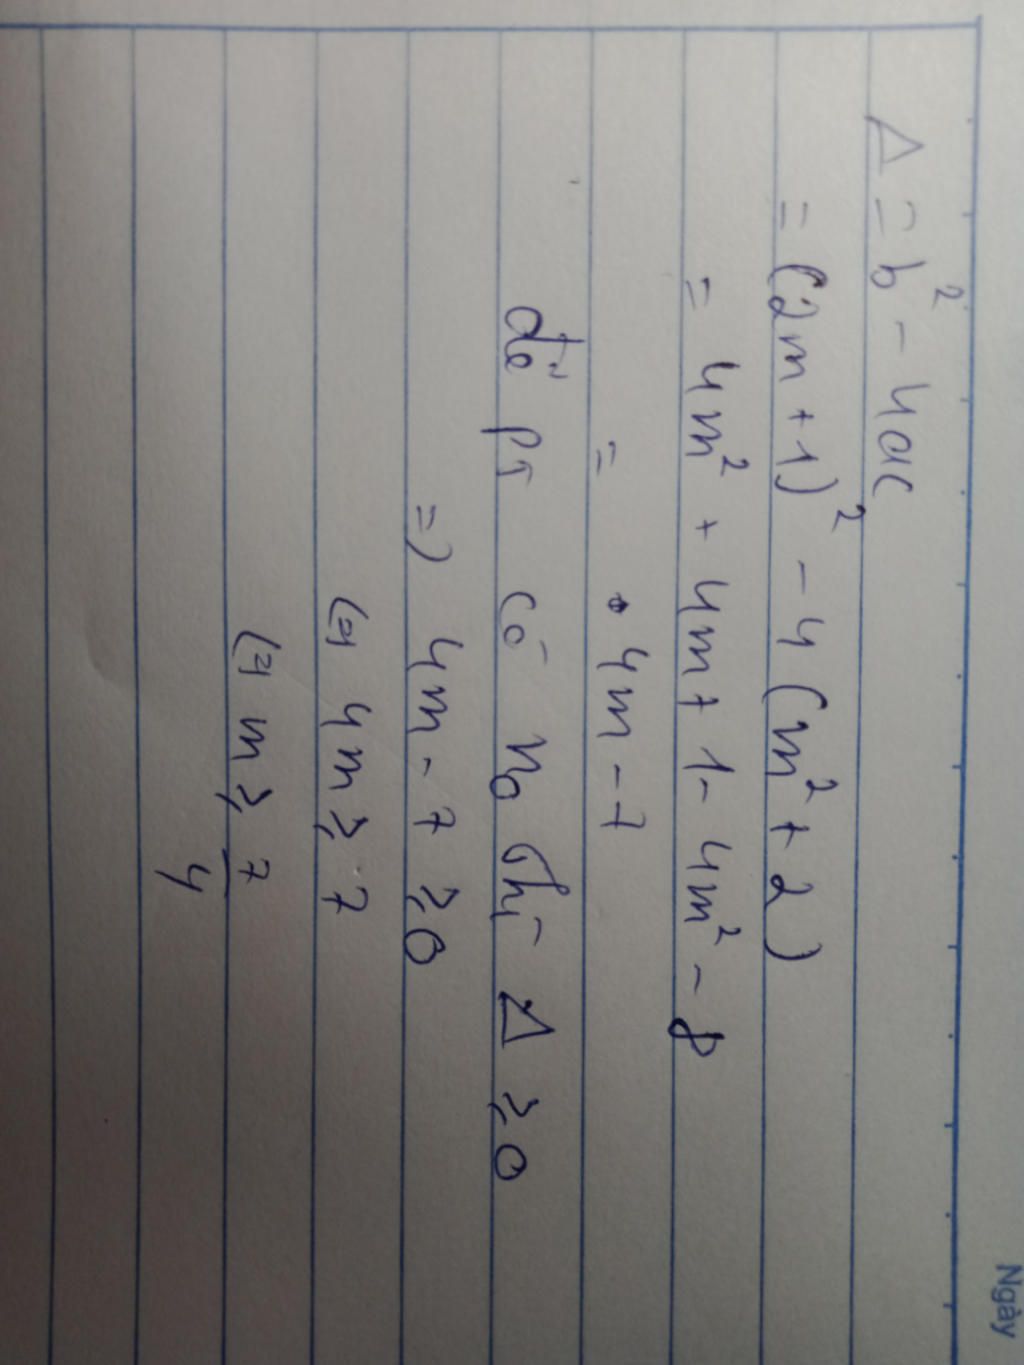 Ngày
Δ = b² - 4ac
= (2m + 1)² - 4 (m² + 2)
= 4m² + 4m + 1 - 4m² - 8
= 4m - 7
để pt có no thì Δ ≥ 0
=) 4m - 7 ≥ 0
(=) 4m ≥ 7
(=) m ≥ 7/4